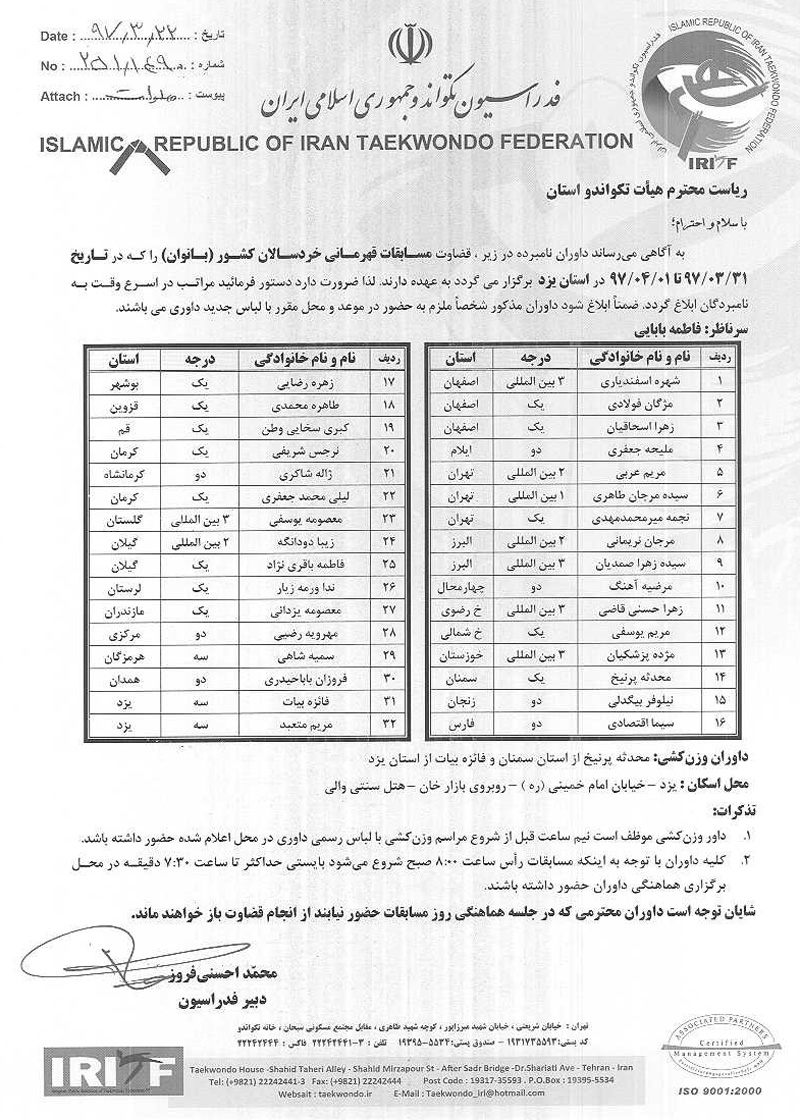 Date : ...۹۷/۳/۲۲... تاریخ :
No : ... شماره :
Attach : ... پیوست :
فدراسیون تکواندو جمهوری اسلامی ایران
ISLAMIC REPUBLIC OF IRAN TAEKWONDO FEDERATION
ISLAMIC REPUBLIC OF IRAN TAEKWONDO FEDERATION
فدراسیون تکواندو جمهوری اسلامی ایران
IRITF
ریاست محترم هیأت تکواندو استان
با سلام و احترام؛
به آگاهی می‌رساند داوران نامبرده در زیر ، قضاوت مسابقات قهرمانی خردسالان کشور (بانوان) را که در تاریخ
۹۷/۰۳/۳۱ تا ۹۷/۰۴/۰۱ در استان یزد برگزار می گردد به عهده دارند. لذا ضرورت دارد دستور فرمائید مراتب در اسرع وقت به
نامبردگان ابلاغ گردد. ضمناً ابلاغ شود داوران مذکور شخصاً ملزم به حضور در موعد و محل مقرر با لباس جدید داوری می باشند.
سرناظر: فاطمه بابایی
ردیف نام و نام خانوادگی درجه استان
۱ شهره اسفندیاری ۳ بین المللی اصفهان
۲ مژگان فولادی یک اصفهان
۳ زهرا اسحاقیان یک اصفهان
۴ ملیحه جعفری دو ایلام
۵ مریم عربی ۲ بین المللی تهران
۶ سیده مرجان طاهری ۱ بین المللی تهران
۷ نجمه میرمحمدمهدی یک تهران
۸ مرجان نریمانی ۲ بین المللی البرز
۹ سیده زهرا صمدیان ۳ بین المللی البرز
۱۰ مرضیه آهنگ دو چهارمحال
۱۱ زهرا حسنی قاضی ۳ بین المللی خ رضوی
۱۲ مریم یوسفی یک خ شمالی
۱۳ مژده پزشکیان ۳ بین المللی خوزستان
۱۴ محدثه پرنیخ یک سمنان
۱۵ نیلوفر بیگدلی دو زنجان
۱۶ سیما اقتصادی دو فارس
ردیف نام و نام خانوادگی درجه استان
۱۷ زهره رضایی یک بوشهر
۱۸ طاهره محمدی یک قزوین
۱۹ کبری سخایی وطن یک قم
۲۰ نرجس شریفی یک کرمان
۲۱ ژاله شاکری دو کرمانشاه
۲۲ لیلی محمد جعفری یک کرمان
۲۳ معصومه یوسفی ۳ بین المللی گلستان
۲۴ زیبا دودانگه ۲ بین المللی گیلان
۲۵ فاطمه باقری نژاد یک گیلان
۲۶ ندا ورمه زیار یک لرستان
۲۷ معصومه یزدانی یک مازندران
۲۸ مهرویه رضیی دو مرکزی
۲۹ سمیه شاهی سه هرمزگان
۳۰ فروزان باباحیدری دو همدان
۳۱ فائزه بیات سه یزد
۳۲ مریم متعبد سه یزد
داوران وزن‌کشی: محدثه پرنیخ از استان سمنان و فائزه بیات از استان یزد
محل اسکان : یزد – خیابان امام خمینی (ره ) – روبروی بازار خان – هتل سنتی والی
تذکرات:
۱. داور وزن‌کشی موظف است نیم ساعت قبل از شروع مراسم وزن‌کشی با لباس رسمی داوری در محل اعلام شده حضور داشته باشد.
۲. کلیه داوران با توجه به اینکه مسابقات رأس ساعت ۸:۰۰ صبح شروع می‌شود بایستی حداکثر تا ساعت ۷:۳۰ دقیقه در محل
برگزاری هماهنگی داوران حضور داشته باشند.
شایان توجه است داوران محترمی که در جلسه هماهنگی روز مسابقات حضور نیابند از انجام قضاوت باز خواهند ماند.
محمّد احسنی‌فروز
دبیر فدراسیون
تهران : خیابان شریعتی ، خیابان شهید میرزاپور ، کوچه شهید طاهری ، مقابل مجتمع مسکونی سبحان ، خانه تکواندو
کد پستی: ۱۹۳۱۷۳۵۵۹۳ - صندوق پستی: ۵۵۳۴-۱۹۳۹۵ تلفن : ۳-۲۲۲۴۲۴۴۱ فاکس : ۲۲۲۴۲۴۴۴
IRITF
Taekwondo House -Shahid Taheri Alley - Shahid Mirzapour St - After Sadr Bridge -Dr.Shariati Ave - Tehran - Iran
Tel: (+9821) 22242441-3 Fax: (+9821) 22242444 Post Code : 19317-35593 . P.O.Box : 19395-5534
Websait : taekwondo.ir E-Mail : Taekwondo_iri@hotmail.com
ASSOCIATED PARTNERS
Certified
Management System
ISO 9001:2000